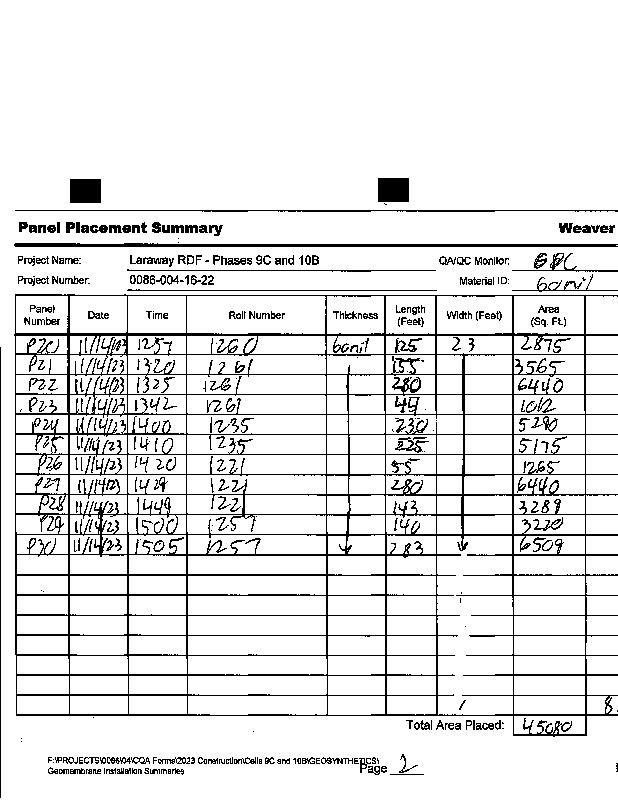 Panel Placement Summary Weaver
Project Name: Laraway RDF - Phases 9C and 10B QA/QC Monitor:
Project Number: 0086-004-16-22 Material ID: 60mil
Panel Number Date Time Roll Number Thickness Length (Feet) Width (Feet) Area (Sq. Ft.)
P20 11/14/23 1257 1260 60mil 125 23 2875
P21 11/14/23 1320 1261 155 3565
P22 11/14/23 1325 1261 280 6440
P23 11/14/23 1342 1261 44 1012
P24 11/14/23 1400 1235 230 5290
P25 11/14/23 1410 1235 225 5175
P26 11/14/23 1420 1221 55 1265
P27 11/14/23 1429 1221 280 6440
P28 11/14/23 1449 1221 143 3289
P29 11/14/23 1500 1257 140 3220
P30 11/14/23 1505 1257 283 6509
8
Total Area Placed: 45080
F:\PROJECTS\0086\04\CQA Forms\2023 Construction\Cells 9C and 10B\GEOSYNTHETICS\
Geomembrane Installation Summaries
Page 2